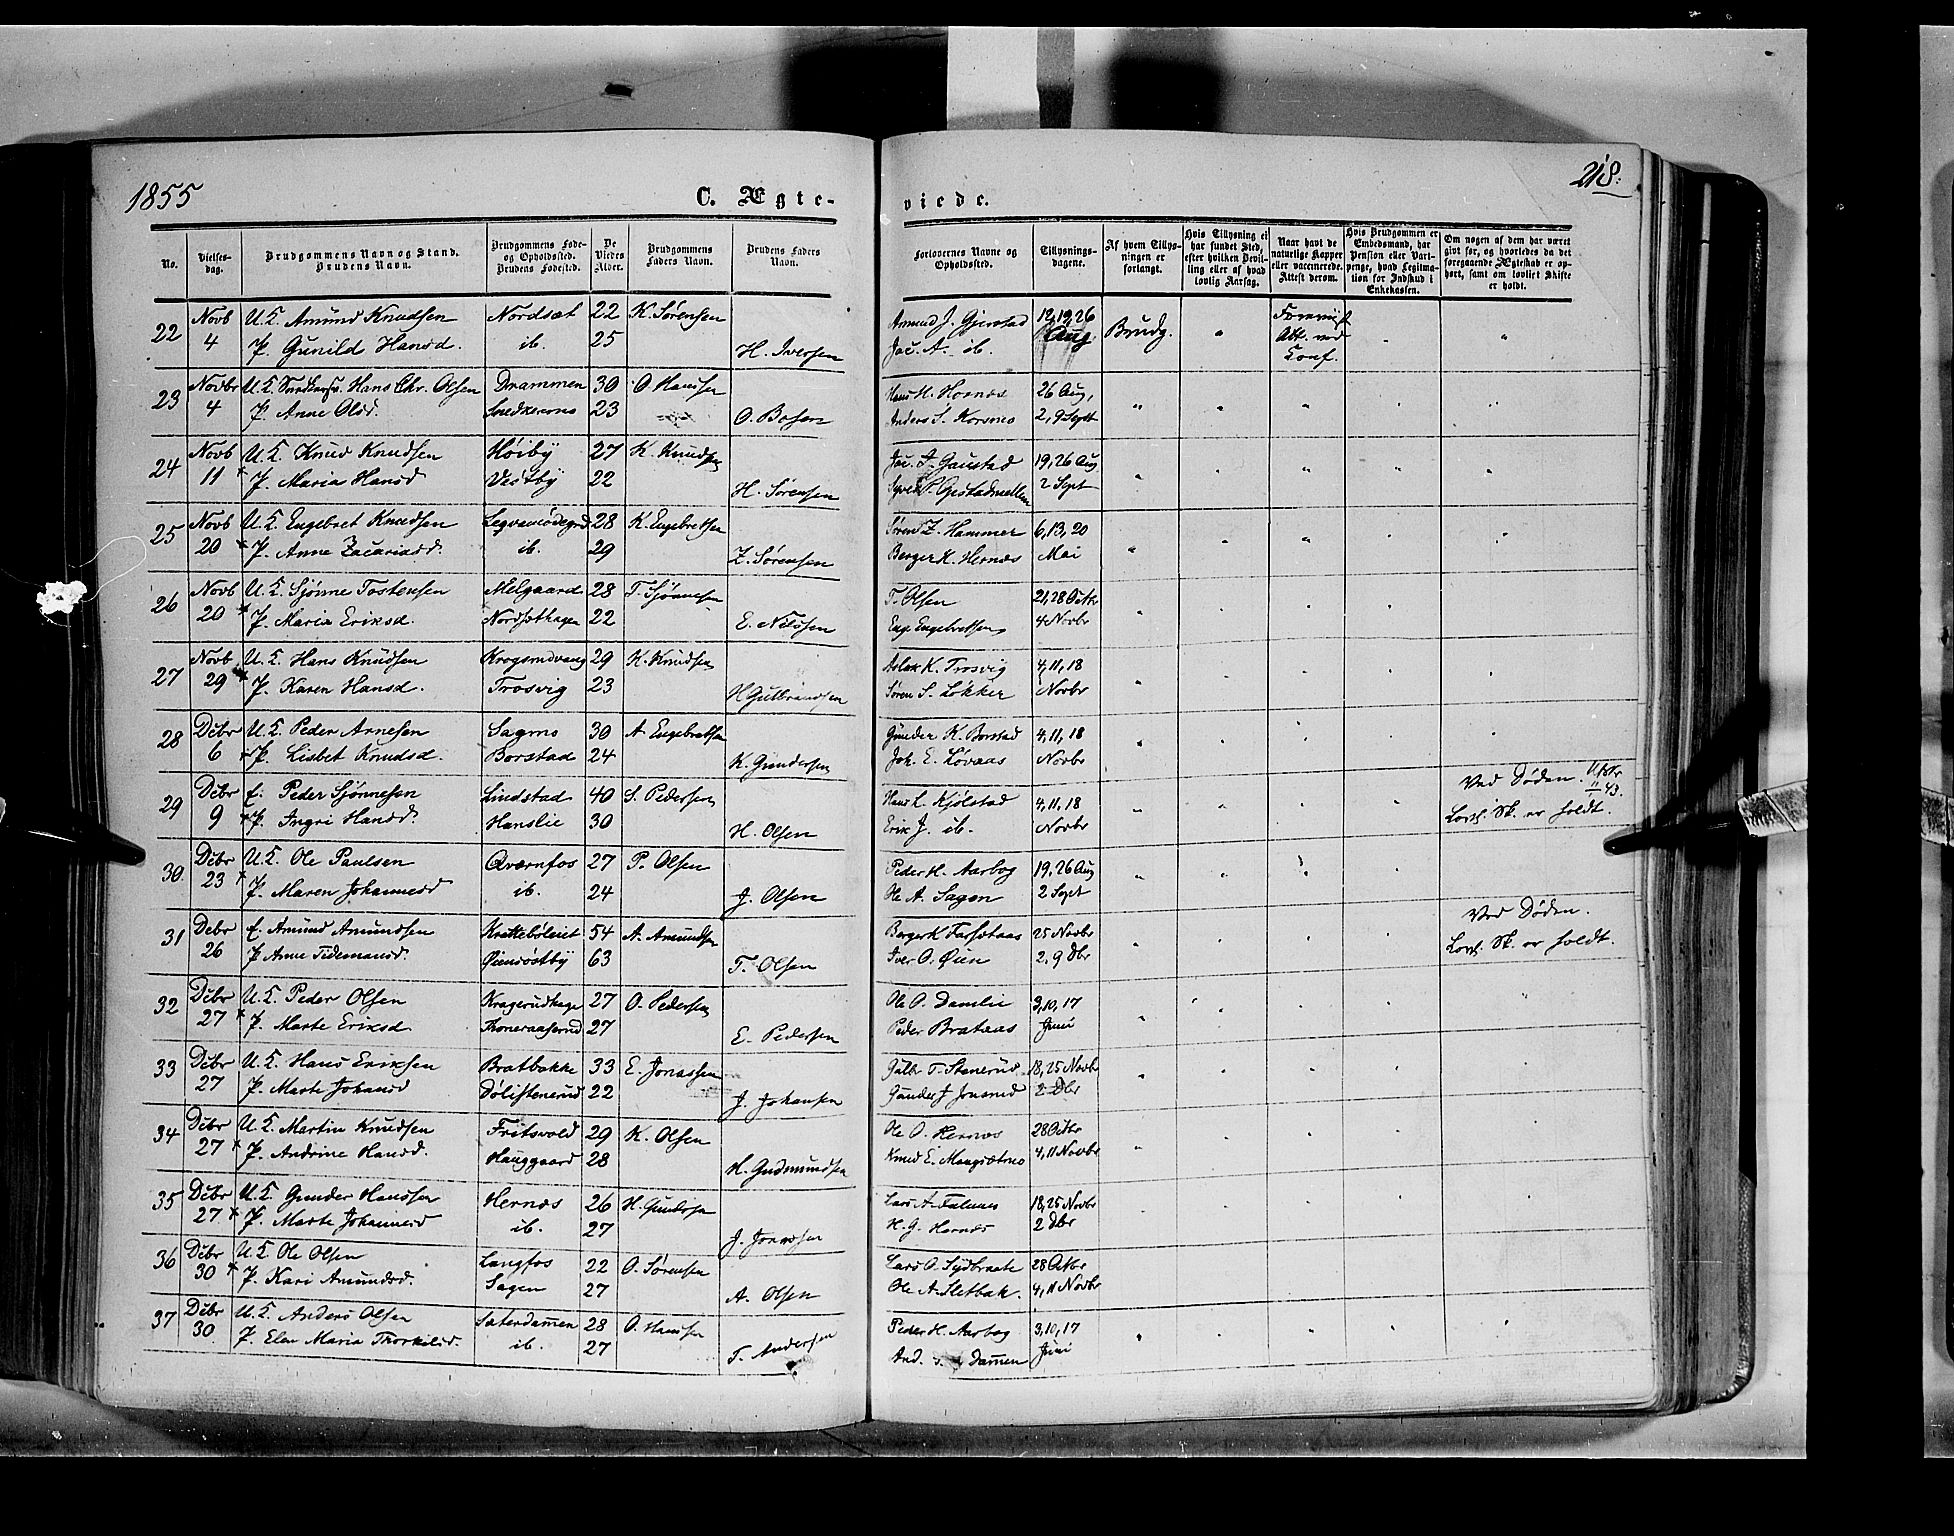 1855
C. Ægte-
viede.
218.
No.
Vielses-
dag.
Brudgommens Navn og Stand.
Brudens Navn.
Brudgommens Føde-
og Opholdssted.
Brudens Fødested.
De
Viedes
Alder.
Brudgommens
Faders Navn.
Brudens Faders
Navn.
Forlovernes Navne og
Opholdssted.
Tillysnings-
dagene.
Af hvem Tillys-
ningen er
forlangt.
Hvis Tillysning ei
har fundet Sted,
efter hvilken Bevil-
ling eller af hvad
lovlig Aarsag.
Naar havt de
naturlige Kopper
eller vaccinerede.
Attest derom.
Hvis Brudgommen er
Embedsmand, har
Pension eller Vart-
penge, hvad Legitima-
tion for Indskud i
Enkekassen.
Om nogen af dem har været
gift før, og hvorledes da det
foregaaende Ægteskab er op-
hørt, samt om lovligt Skifte
er holdt.
22 Novb U.K. Amund Knudsen Nordsæt 22 K. Sørensen Amund J. Gjerstad 12,19,26
4 P. Gunild Hansd. ib. 25 H. Iversen Jac. A. ib. Aug. Brudg. " Att. ved " "
Conf.
23 Novbr U.K. Hans Chr. Olsen Drammen 30 O. Hansen Hans H. Hornæs 26 Aug,
4 P. Anne Olsd. Snekkermo 23 O. Boesen Anders S. Korsmo 2, 9 Sept " " " " "
24 Novb U.K. Knud Knudsen Høiby 27 K. Knudsen Jac. J. Gaustad 19, 26 Aug
11 * P. Maria Hansd Vestby 22 H. Sørensen 2 Sept " " " " "
25 Novb U.K. Engebret Knudsen 28 K. Engebretsen Søren Z. Hammer 6, 13, 20
20 * P. Anne Zacariasd. ib. 29 Z. Sørensen Berger K. Hernæs Mai " " " " "
26 Novb U.K. Sjønne Tostensen Melgaard 28 T. Sjønnesen T. Olsen 21, 28 Octbr
20 * P. Maria Eriksd. Nordsethagen 22 E. Nilssen Eng. Engebretsen 4 Novbr " " " "
27 Novb U.K. Hans Knudsen Krogsrudvang 29 K. Knudsen Aslak K. Trosvig 4, 11, 18
29 * P. Karen Hansd. Trosvig 23 H Gulbrandsen Søren S. Løkker Novbr " " " "
28 Debr U.K. Peder Arnesen Sagmo 30 A. Engebretsen Gunder K. Borstad 4, 11, 18
6 * P. Lisbet Knudsd. Borstad 24 K. Gundersen Joh. E. Løvaas Novbr " " " "
29 Debr E. Peder Sjønnesen Lindstad 40 S. Pedersen Hans L. Kjølstad 4, 11, 18 Ved Døden.
9 * P. Ingri Hansd. Hanslie 30 H. Olsen Erik J. ib. Novbr " " " " Lovl. Sk. er holdt.
30. Debr U.K. Ole Paulsen Qværnfos 27 P. Olsen Peder H. Aarbog 19, 26 Aug
23 * P. Maren Johannesd ib. 24 J. Olsen Ole A. Sagen 2 Sept " " " "
31 Debr E. Amund Amundsen Krattebøleiet 54 A. Amundsen Berger K. Farsetaas 25 Novbr Ved Døden.
26 P Anne Tidemansd. Øiensøstby 63 T. Olsen Iver O. Øien 2, 9 Dbr " " " " Lovl. Sk. er holdt.
32 Debr U.K. Peder Olsen Kragerudhage 27 O. Pedersen Ole O. Damlie 3, 10, 17
27 * P. Marte Eriksd 27 E. Pedersen Peder Brataas Juni " " " " "
33 Debr U.K. Hans Eriksen Bratbakke 33 E. Jonassen Gulb. T. Stenerud 18, 25 Novbr
27 P. Marte Johansd Dølistenerud 22 J. Johansen Gunder J Jonsrud 2 Dbr " " " "
34 Debr U.K. Martin Knudsen Fritsvold 29 K. Olsen Ole O. Hernæs 28 Octbr
27 * P. Andrine Hansd. Hauggaard 28 H. Gudmundsen Knud E. Mangsætmo 4, 11 Novbr " " " "
35 Debr U.K. Gunder Hanssen Hernæs 26 H. Gundersen Lars A. Falmes 18, 25 Novbr
27 * P. Marte Johannesd ib. 27 J. Jonassen H. G. Hernæs 2 Dbr
36 Debr U.K. Ole Olsen Langfos 22 O. Sørensen Lars O. Sydbraate 28 Octbr
30 * P. Kari Amundsd. Sagen 27 A. Olsen Ole A. Sletbak. 4, 11 Novbr
37 Debr U.K. Anders Olsen Sæterdammen 28 O. Hansen Peder H. Aarbog 3, 10, 17
30 P. Elen Maria Thorkilsd. ib. 27 T. Andersen And. Dammen Juni " " " " "